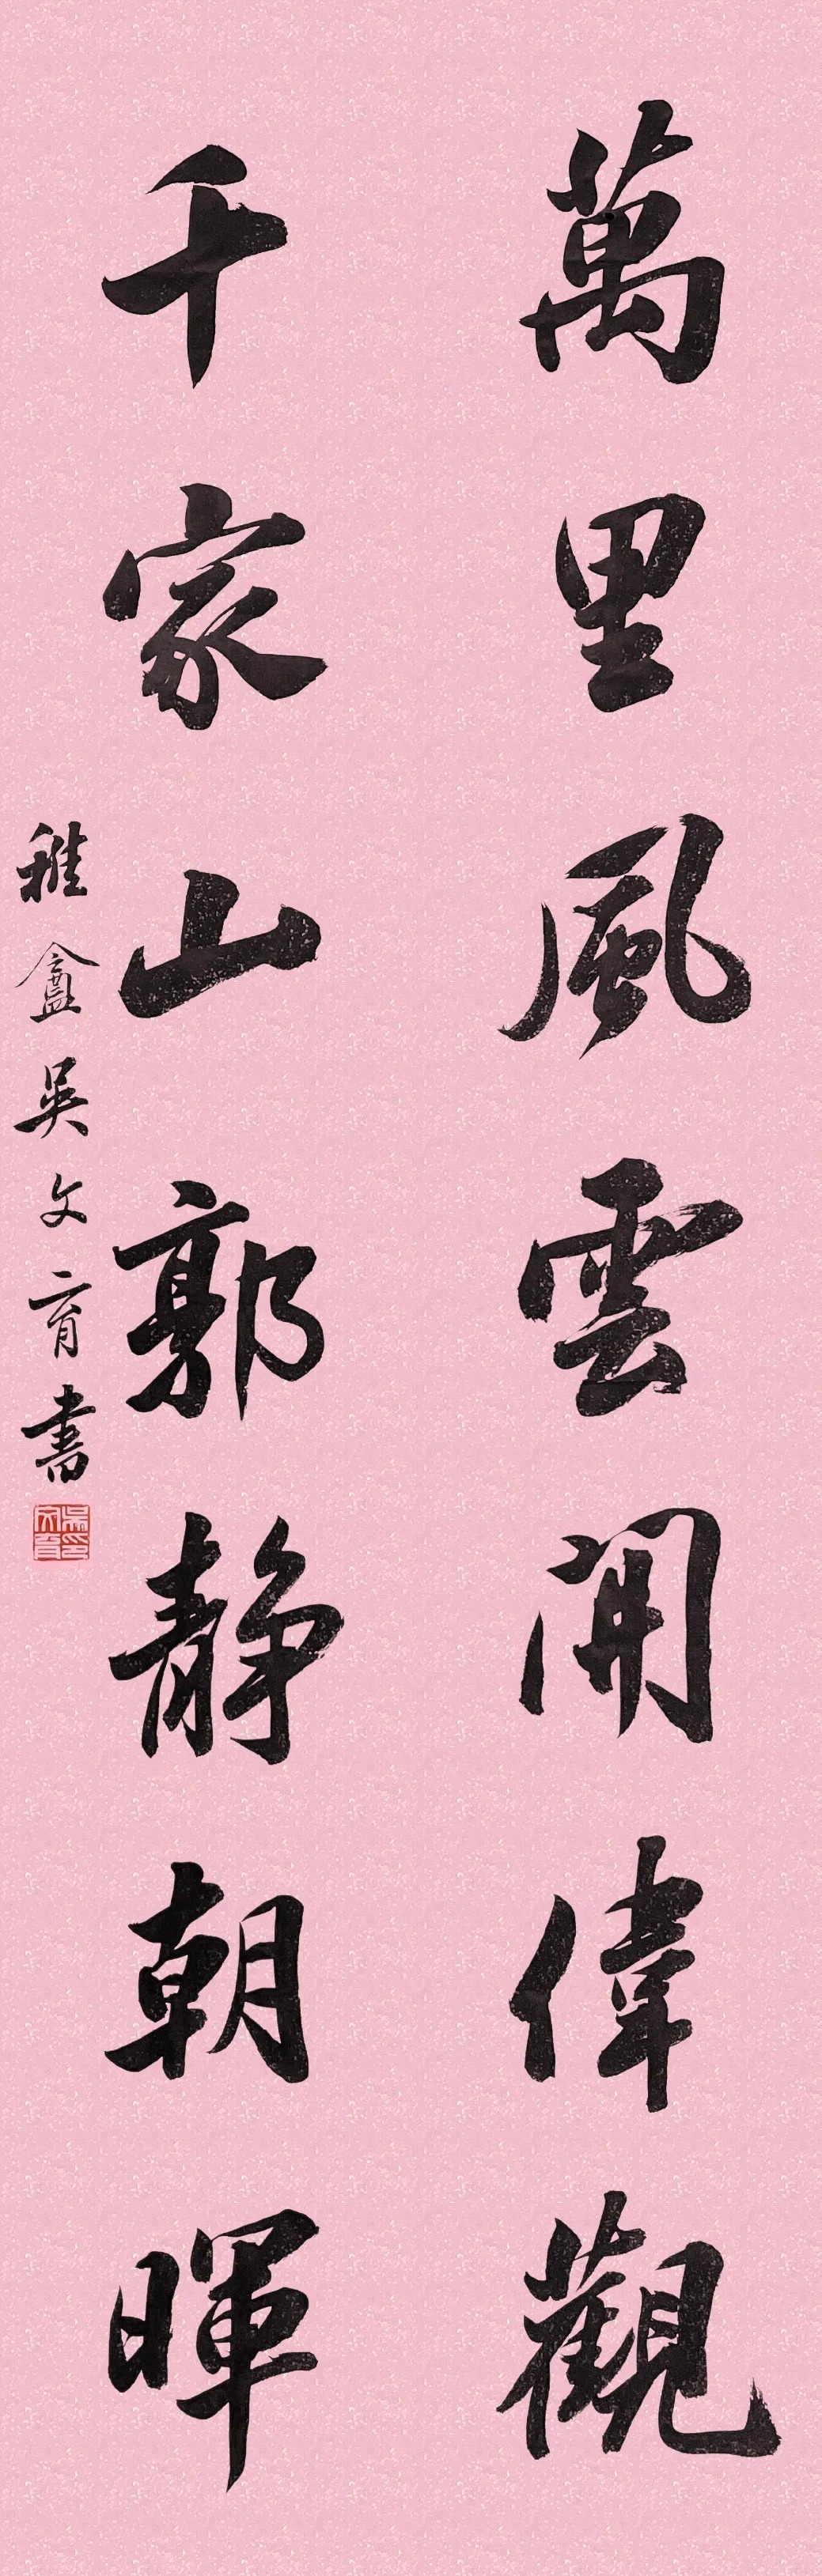 萬里風雲開偉觀
千家山郭静朝暉
稚盦吳文育書